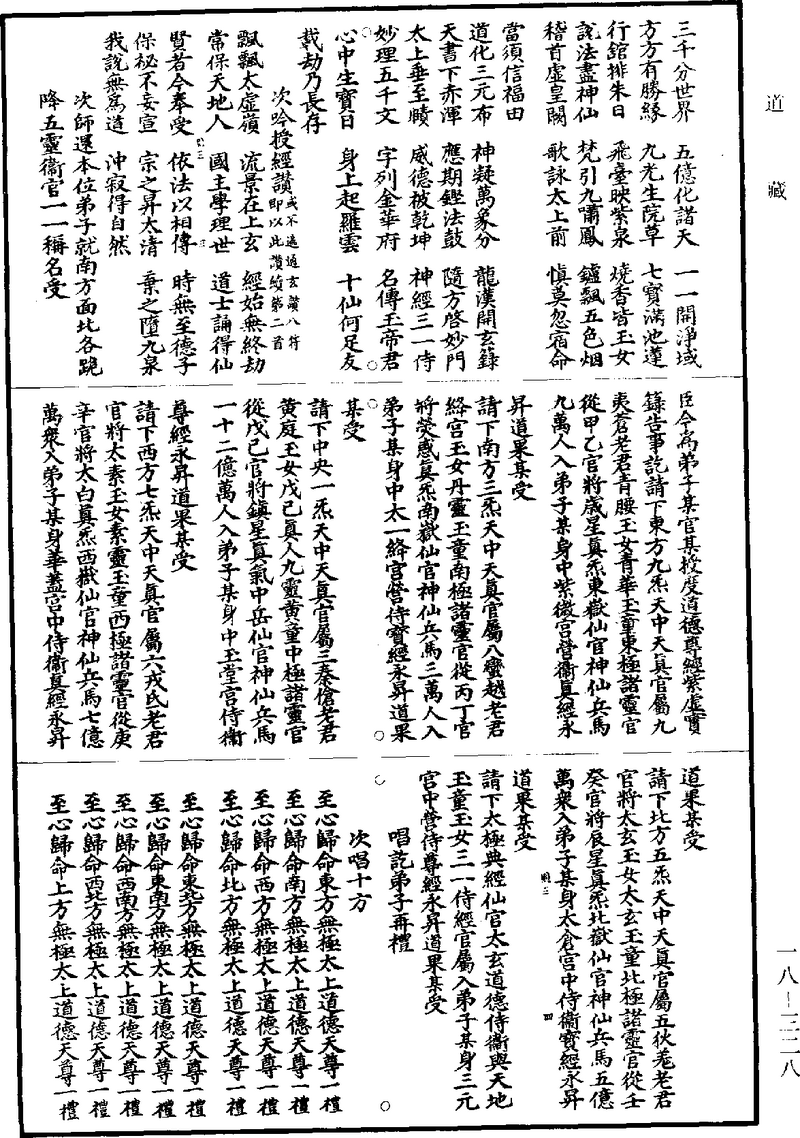 道藏
三千分世界　五億化諸天　一一開淨域
方方有勝緣　九光生院草　七寶滿池蓮
行舘排朱日　飛臺映紫泉　燒香皆玉女
說法盡神仙　梵引九嘯鳳　鑪飄五色烟
稽首虛皇闕　歌詠太上前　愼莫忽宿命
當須信福田
道化三元布　神凝萬象分　龍漢開玄籙
天書下赤渾　應期鏗法鼓　隨方啓妙門
太上垂至賾　威德被乾坤　神經三一侍
妙理五千文　字列金華府　名傳玉帝君
心中生寶日　身上起羅雲　十仙何足友
載劫乃長存
次吟授經讚或不通過玄讚八符即以此讚續第二首
飄飄太虛嶺　流景在上玄　經始無終劫
常保天地人　國主學理世　道士誦得仙
賢者今奉受　依法以相傳　時無至德子
保祕不妄宣　宗之昇太清　棄之墮九泉
我說無爲道　沖寂得自然
次師還本位弟子就南方面北各跪
降五靈衞官一一稱名受
臣今爲弟子某官某授度道德尊經紫虛寶
籙告事訖請下東方九炁天中天眞官屬九
夷蒼老君青腰玉女青華玉童東極諸靈官
從甲乙官將歲星眞炁東嶽仙官神仙兵馬
九萬人入弟子某身中紫微宮營衞眞經永
昇道果某受
請下南方三炁天中天眞官屬八蠻越老君
絳宮玉女丹靈玉童南極諸靈官從丙丁官
將熒惑眞炁南嶽仙官神仙兵馬三萬人入
弟子某身中太一絳宮營侍寶經永昇道果
某受
請下中央一炁天中天眞官屬三秦傖老君
黃庭玉女戊己眞人九靈黃童中極諸靈官
從戊己官將鎮星眞氣中岳仙官神仙兵馬
一十二億萬人入弟子某身中玉堂宮侍衞
尊經永昇道果某受
請下西方七炁天中天眞官屬六戎氐老君
官將太素玉女素靈玉童西極諸靈官從庚
辛官將太白眞炁西嶽仙官神仙兵馬七億
萬衆入弟子某身華蓋宮中侍衞眞經永昇
道果某受
請下北方五炁天中天眞官屬五狄羌老君
官將太玄玉女太玄玉童北極諸靈官從壬
癸官將辰星眞炁北嶽仙官神仙兵馬五億
萬衆入弟子某身太倉宮中侍衞寶經永昇
道果某受
請下太極典經仙官太玄道德侍衞與天地
玉童玉女三一侍經官屬入弟子某身三元
宮中營侍尊經永昇道果某受
唱訖弟子再禮
次唱十方
至心歸命東方無極太上道德天尊一禮
至心歸命南方無極太上道德天尊一禮
至心歸命西方無極太上道德天尊一禮
至心歸命北方無極太上道德天尊一禮
至心歸命東北方無極太上道德天尊一禮
至心歸命東南方無極太上道德天尊一禮
至心歸命西南方無極太上道德天尊一禮
至心歸命西北方無極太上道德天尊一禮
至心歸命上方無極太上道德天尊一禮
一八－三二八